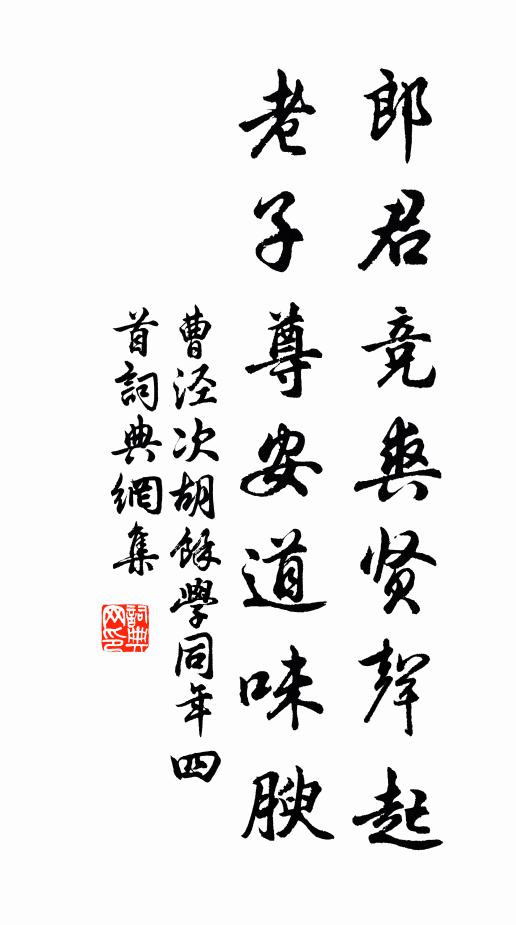 郎君竞爽贤聲起
老子尊安道味腴
曹泾次胡餘學同年四
首詞典網集
詞典网印